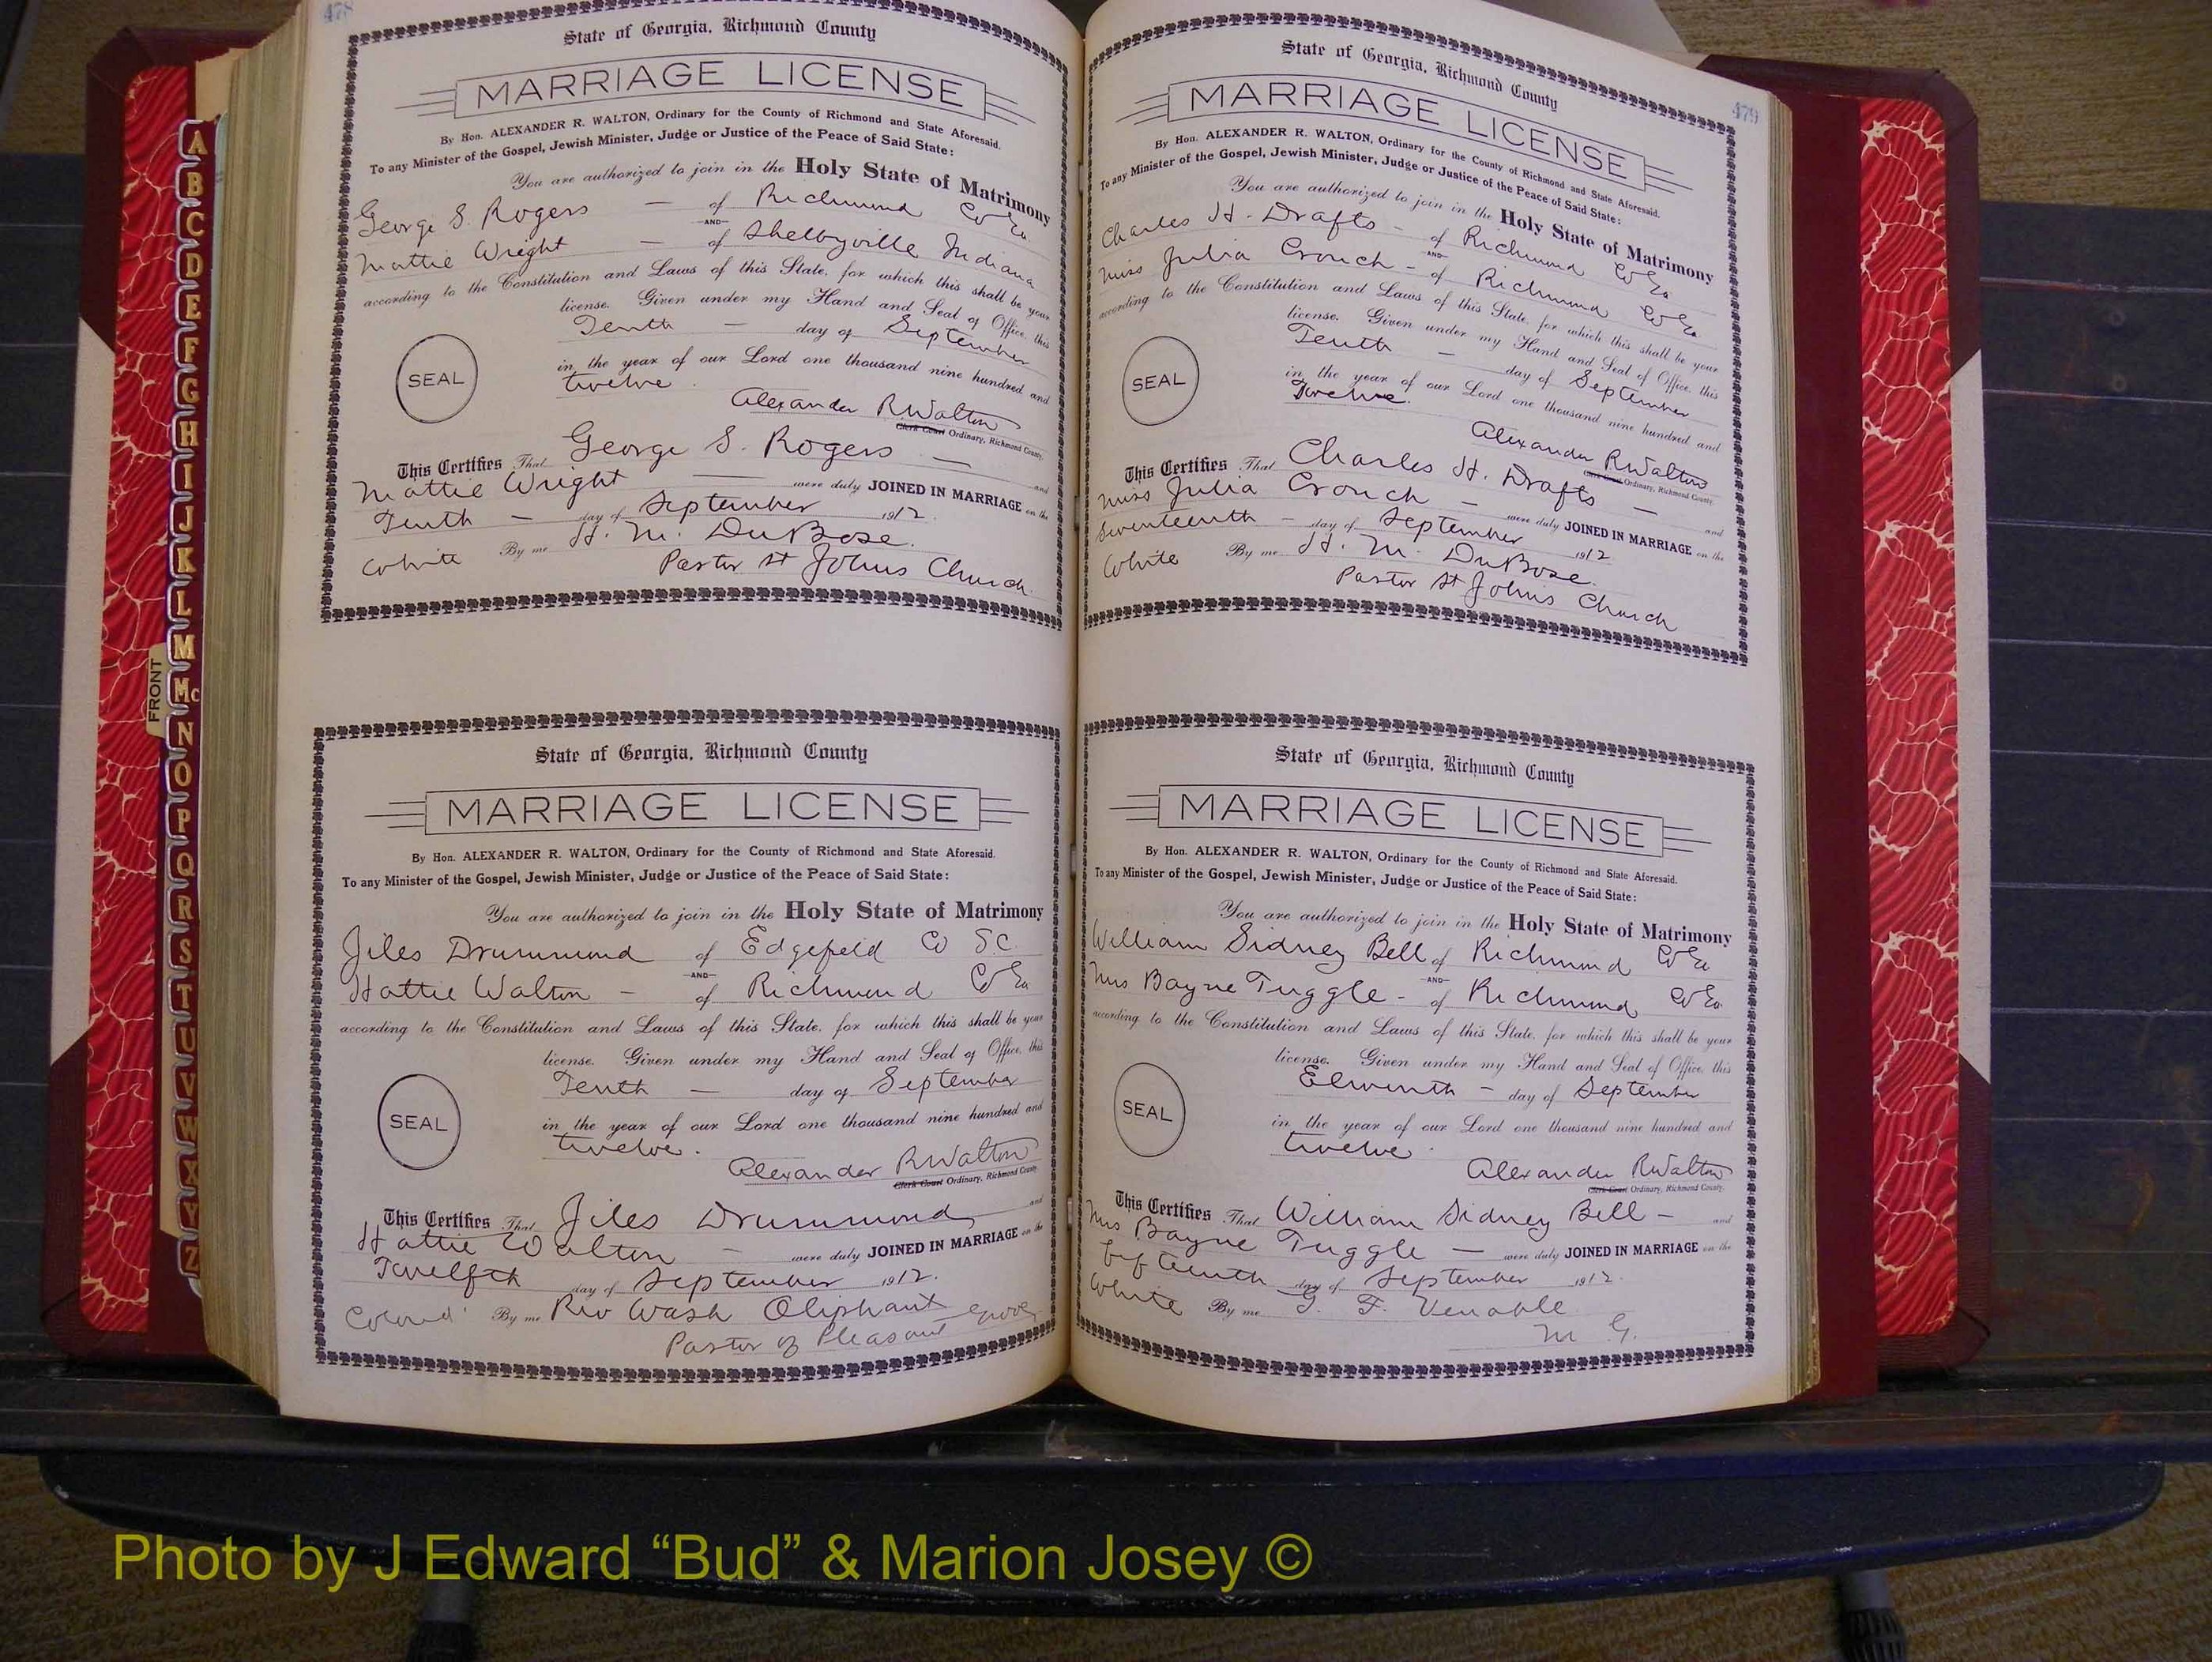 A
B
C
D
E
F
G
H
I
J
K
L
M
Mc
N
O
P
Q
R
S
T
U
V
W
X
Y
Z
FRONT
478
State of Georgia, Richmond County
MARRIAGE LICENSE
By Hon. ALEXANDER R. WALTON, Ordinary for the County of Richmond and State Aforesaid.
To any Minister of the Gospel, Jewish Minister, Judge or Justice of the Peace of Said State:
You are authorized to join in the Holy State of Matrimony
George S. Rogers — of Richmond Co Ga
AND
Mattie Wright — of Shelbyville Indiana
according to the Constitution and Laws of this State, for which this shall be your
license. Given under my Hand and Seal of Office, this
Tenth — day of September
SEAL
in the year of our Lord one thousand nine hundred and
twelve.
Alexander R Walton
Clerk Court Ordinary, Richmond County.
This Certifies That George S. Rogers — and
Mattie Wright — were duly JOINED IN MARRIAGE on the
Tenth — day of September 1912.
White By me H. M. DuBose.
Pastor St Johns Church.
State of Georgia, Richmond County
MARRIAGE LICENSE
By Hon. ALEXANDER R. WALTON, Ordinary for the County of Richmond and State Aforesaid.
To any Minister of the Gospel, Jewish Minister, Judge or Justice of the Peace of Said State:
You are authorized to join in the Holy State of Matrimony
Jiles Drummond of Edgefield Co S.C.
AND
Hattie Walton — of Richmond Co Ga
according to the Constitution and Laws of this State, for which this shall be your
license. Given under my Hand and Seal of Office, this
Tenth — day of September
SEAL
in the year of our Lord one thousand nine hundred and
twelve.
Alexander R Walton
Clerk Court Ordinary, Richmond County.
This Certifies That Jiles Drummond and
Hattie Walton — were duly JOINED IN MARRIAGE on the
Twelfth day of September 1912.
Colored By me Rev Wash Oliphant
Pastor of Pleasant Grove
479
State of Georgia, Richmond County
MARRIAGE LICENSE
By Hon. ALEXANDER R. WALTON, Ordinary for the County of Richmond and State Aforesaid.
To any Minister of the Gospel, Jewish Minister, Judge or Justice of the Peace of Said State:
You are authorized to join in the Holy State of Matrimony
Charles H. Drafts - of Richmond Co Ga
AND
Miss Julia Crouch - of Richmond Co Ga
according to the Constitution and Laws of this State, for which this shall be your
license. Given under my Hand and Seal of Office, this
Tenth — day of September
SEAL
in the year of our Lord one thousand nine hundred and
Twelve.
Alexander R Walton
Clerk Court Ordinary, Richmond County.
This Certifies That Charles H. Drafts — and
Miss Julia Crouch — were duly JOINED IN MARRIAGE on the
Seventeenth — day of September 1912
White By me H. M. DuBose.
Pastor St Johns Church
State of Georgia, Richmond County
MARRIAGE LICENSE
By Hon. ALEXANDER R. WALTON, Ordinary for the County of Richmond and State Aforesaid.
To any Minister of the Gospel, Jewish Minister, Judge or Justice of the Peace of Said State:
You are authorized to join in the Holy State of Matrimony
William Sidney Bell of Richmond Co Ga
AND
Mrs Bayne Tuggle - of Richmond Co Ga
according to the Constitution and Laws of this State, for which this shall be your
license. Given under my Hand and Seal of Office, this
Eleventh - day of September
SEAL
in the year of our Lord one thousand nine hundred and
twelve.
Alexander R Walton
Clerk Court Ordinary, Richmond County.
This Certifies That William Sidney Bell - and
Mrs Bayne Tuggle — were duly JOINED IN MARRIAGE on the
fifteenth day of September 1912.
White By me F. Venable
M G.
Photo by J Edward “Bud” & Marion Josey ©